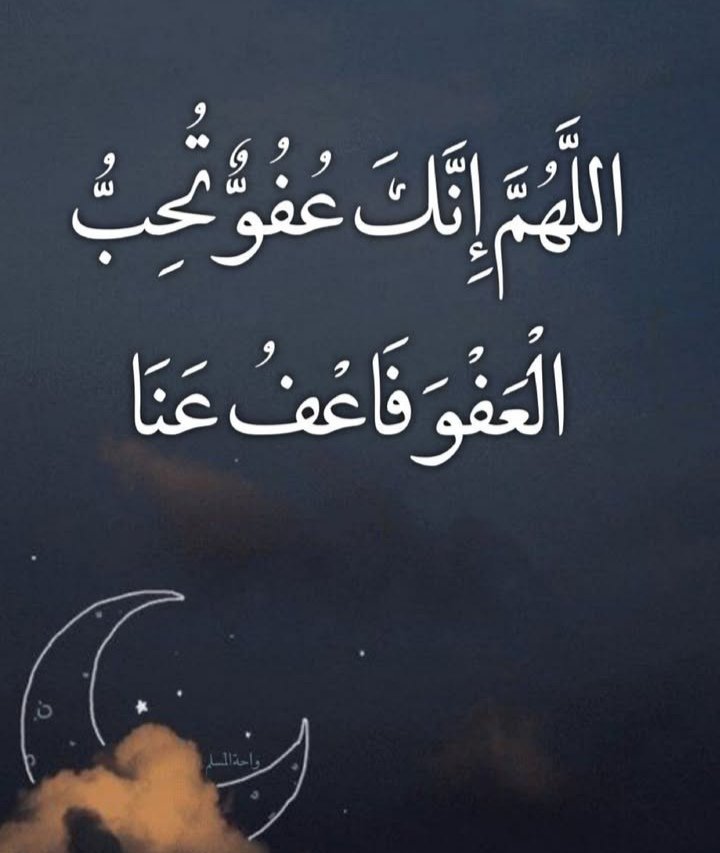 اللَّهُمَّ إِنَّكَ عُفُوٌّ تُحِبُّ
الْعَفْوَ فَاعْفُ عَنَا
واحة المسلم